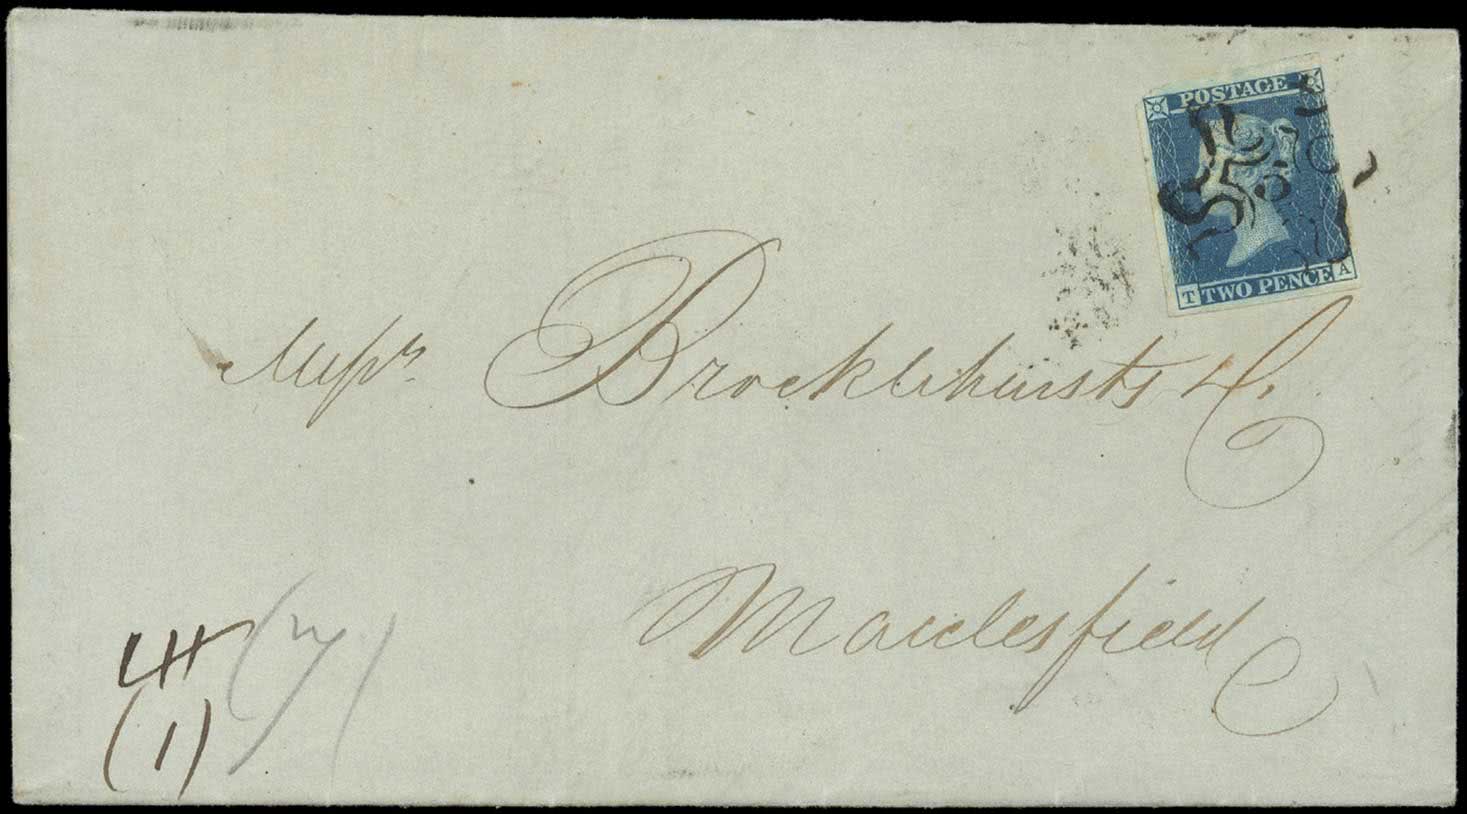 POSTAGE
5
T TWO PENCE A
Messrs Brocklehursts & Co
Macclesfield
(1)